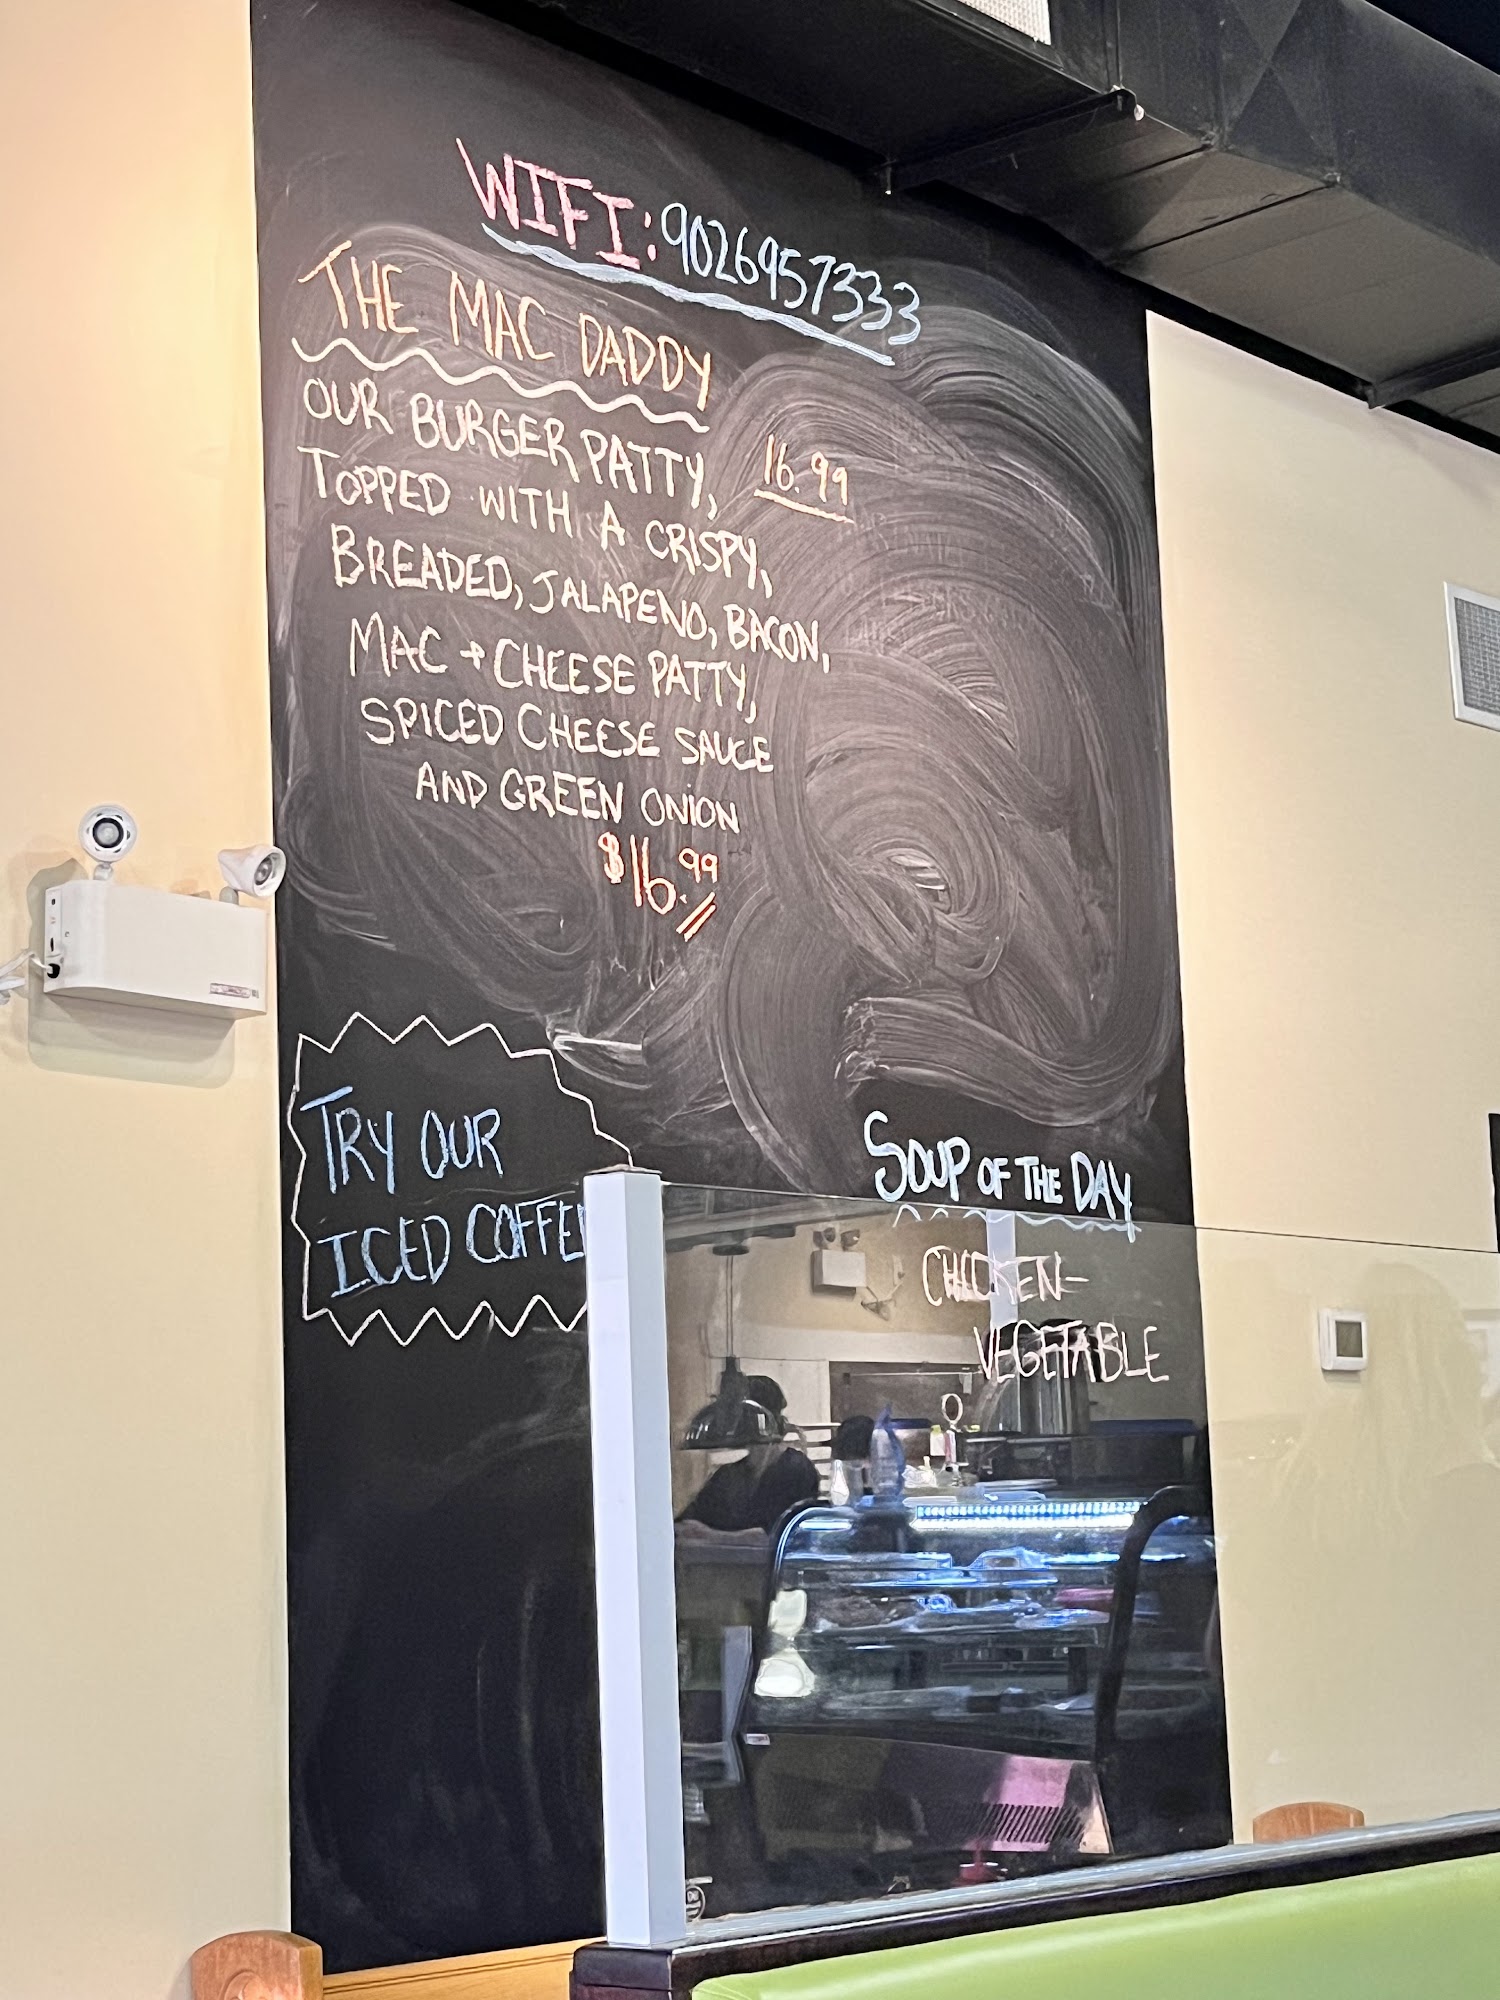 WIFI: 9026957333
THE MAC DADDY
OUR BURGER PATTY, 16.99
TOPPED WITH A CRISPY,
BREADED, JALAPENO, BACON,
MAC + CHEESE PATTY,
SPICED CHEESE SAUCE
AND GREEN ONION
$16.99
TRY OUR
ICED COFFEE
SOUP OF THE DAY
CHICKEN-
VEGETABLE